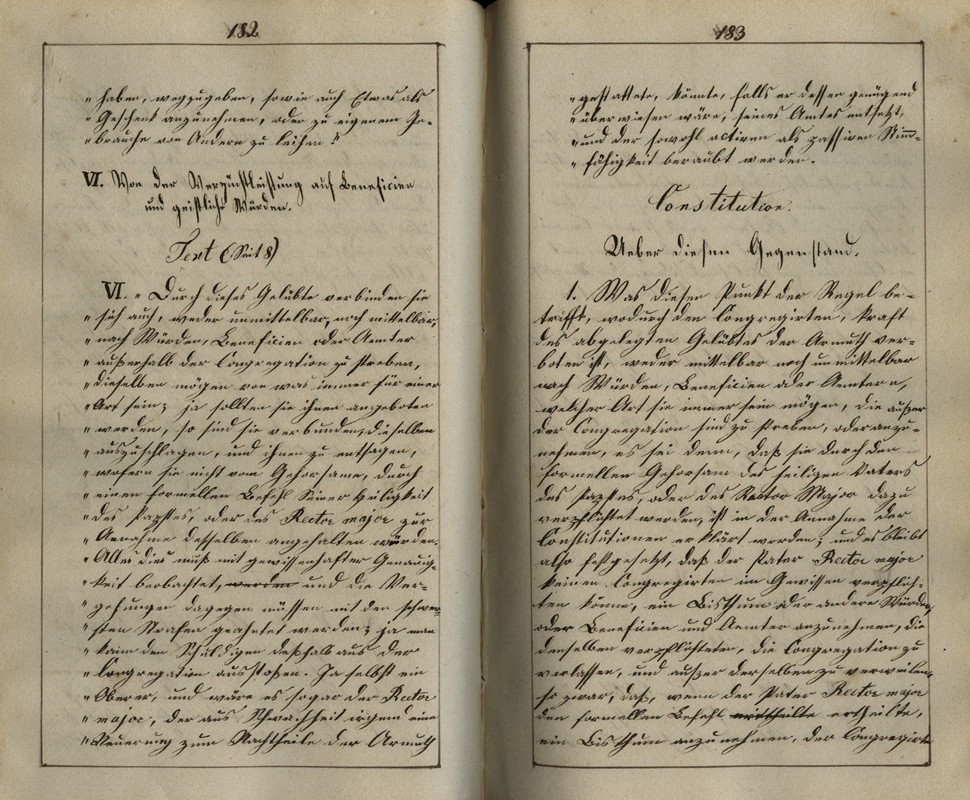 182
" haben, wegzugeben, sowie auch Etwas als
" Geschenk anzunehmen, oder zu eigenem Ge-
" brauche von Andern zu leihen!
VI. Von der Verzichtleistung auf Beneficien
und geistliche Würden.
Text (Seit 8)
VI. " Durch dieses Gelübte verbinden sie
" sich auch, weder unmittelbar, noch mittelbar,
" nach Würden, Beneficien oder Aemter
" außerhalb der Congregation zu streben,
" dieselben mögen von was immer für einer
" Art sein; ja sollten sie ihnen angeboten
" werden, so sind sie verbunden, dieselben
" auszuschlagen, und ihnen zu entsagen,
" wofern sie nicht vom Gehorsame, durch
" einen formellen Befehl Seiner Heiligkeit
" des Papstes, oder des Rector major zur
" Annahme desselben angehalten würden.
" Alles dies muß mit gewissenhafter Genauig-
" keit beobachtet, werden und die Ver-
" gehungen dagegen müssen mit den schwer-
" sten Strafen geahntet werden; ja man
" kann den Schuldigen deßhalb aus der
" Congregation ausstoßen. Ja selbst ein
" Oberer, und wäre es sogar der Rector
" major, der aus Schwachheit irgend eine
" Neuerung zum Nachtheile der Armuth
183
" gestattete, könnte, falls er dessen genügend
" überwiesen wäre, seines Amtes entsetzt,
" und der sowohl activen als passiven Stimm-
" fähigkeit beraubt werden.
Constitution.
Ueber diesen Gegenstand.
1. Was diesen Punkt der Regel be-
trifft, wodurch den Congregirten, kraft
des abgelegten Gelübtes der Armuth ver-
boten ist, weder mittelbar noch unmittelbar
nach Würden, Beneficien oder Aemtern,
welcher Art sie immer sein mögen, die außer
der Congregation sind zu streben, oder anzu-
nehmen, es sei denn, daß sie durch den
formellen Gehorsam des heiligen Vaters
des Papstes, oder des Rector Major dazu
verpflichtet werden, ist in der Annahme der
Constitutionen erklärt worden; und es bleibt
also festgesetzt, daß der Pater Rector major
keinen Congregirten im Gewissen verpflich-
ten könne, ein Bisthum oder andere Würden,
oder Beneficien und Aemter anzunehmen, die
denselben verpflichteten, die Congregation zu
verlassen, und außer derselben zu verweilen,
so zwar, daß, wenn der Pater Rector major
den formellen Befehl mittheilte ertheilte,
ein Bisthum anzunehmen, der Congregirte